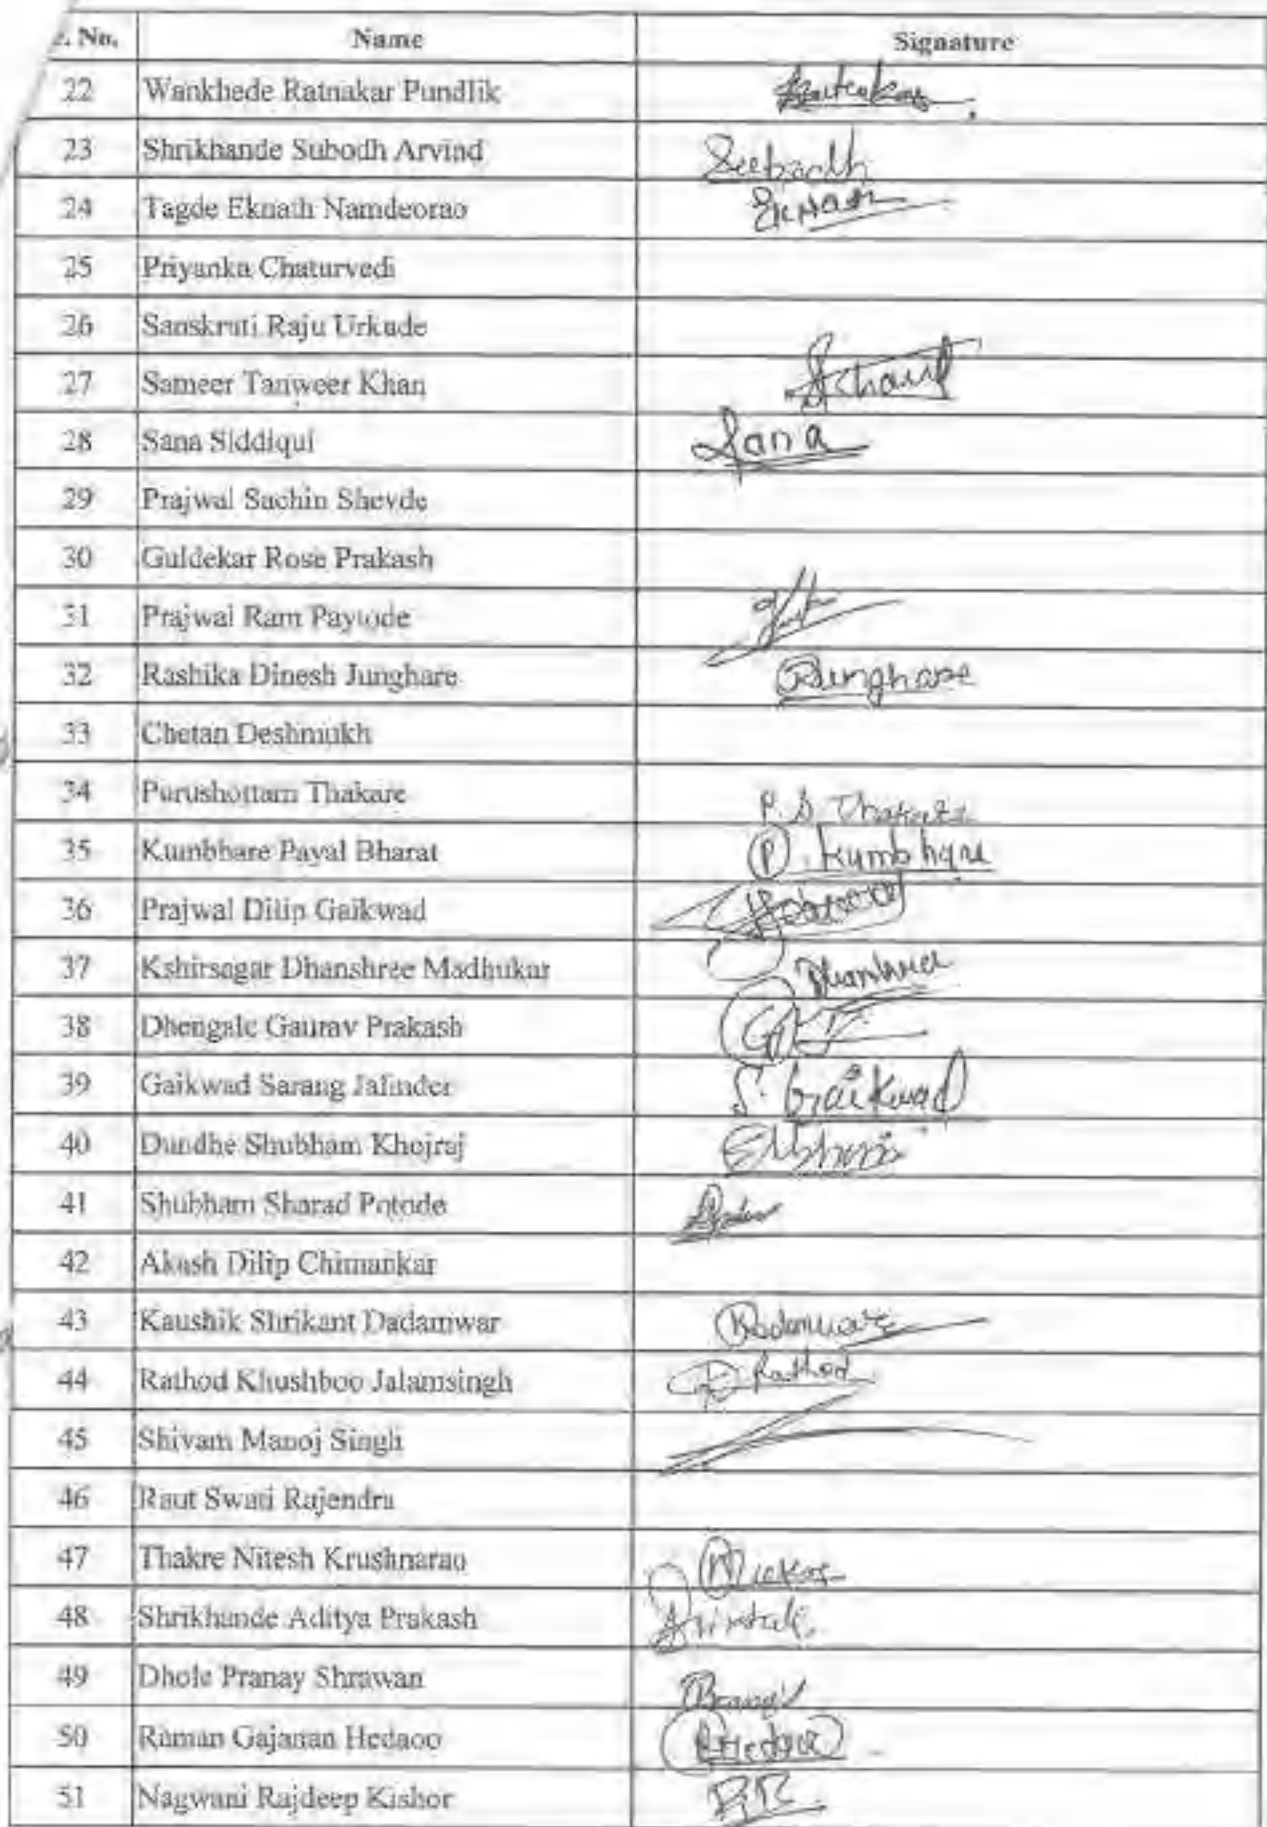 . No. Name Signature
22 Wankhede Ratnakar Pundlik Ratnakar
23 Shrikhande Subodh Arvind
24 Tagde Eknath Namdeorao Eknath
25 Priyanka Chaturvedi
26 Sanskruti Raju Urkude
27 Sameer Tanweer Khan
28 Sana Siddiqui Sana
29 Prajwal Sachin Shevde
30 Guldekar Rose Prakash
31 Prajwal Ram Paytode
32 Rashika Dinesh Junghare RJunghare
33 Chetan Deshmukh
34 Purushottam Thakare P. S. Thakare
35 Kumbhare Payal Bharat P. Kumbhare
36 Prajwal Dilip Gaikwad
37 Kshirsagar Dhanshree Madhukar
38 Dhengale Gaurav Prakash
39 Gaikwad Sarang Jalinder S. Gaikwad
40 Dundhe Shubham Khojraj
41 Shubham Sharad Potode
42 Akash Dilip Chimankar
43 Kaushik Shrikant Dadamwar
44 Rathod Khushboo Jalamsingh Rathod
45 Shivam Manoj Singh
46 Raut Swati Rajendra
47 Thakre Nitesh Krushnarao
48 Shrikhande Aditya Prakash
49 Dhole Pranay Shrawan
50 Raman Gajanan Hedaoo RHedaoo
51 Nagwani Rajdeep Kishor